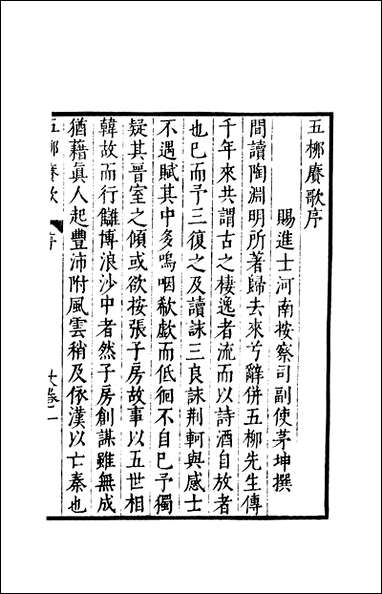 五栁賡歌序
賜進士河南按察司副使茅坤撰
間讀陶淵明所著歸去來兮辭併五柳先生傳
千年來共謂古之棲逸者流而以詩酒自放者
也已而予三復之及讀詠三良詠荆軻與感士
不遇賦其中多嗚咽欷歔而低徊不自已予獨
疑其晉室之傾或欲按張子房故事以五世相
韓故而行讎博浪沙中者然子房創謀雖無成
猶藉眞人起豐沛附風雲稍及係漢以亡秦也
五栁賡歌 序